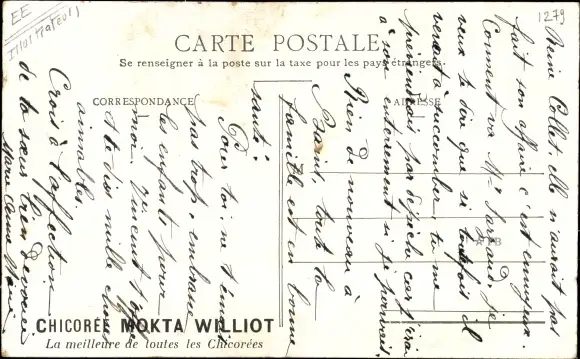 EE
Illustrateurs
1279
CARTE POSTALE
Se renseigner à la poste sur la taxe pour les pays étrangers.
CORRESPONDANCE
ADRESSE
Reine Collet elle n'aurait pas
fait son affaire c'est ennuyeux.
Comment va Mr je
veux te dire que si toutefois il
venait à succomber, tu me
par dépêche car j'irai
à son enterrement si je pouvais.
Rien de nouveau à
toute la
famille est en bonne
santé.
Pour toi, ne t'ennuie
pas trop, embrasse
les enfants pour
moi, Vincent
et te dis mille choses
aimables.
Crois à l'affection
de ta sœur bien dévouée
Marie
CHICORÉE MOKTA WILLIOT
La meilleure de toutes les Chicorées